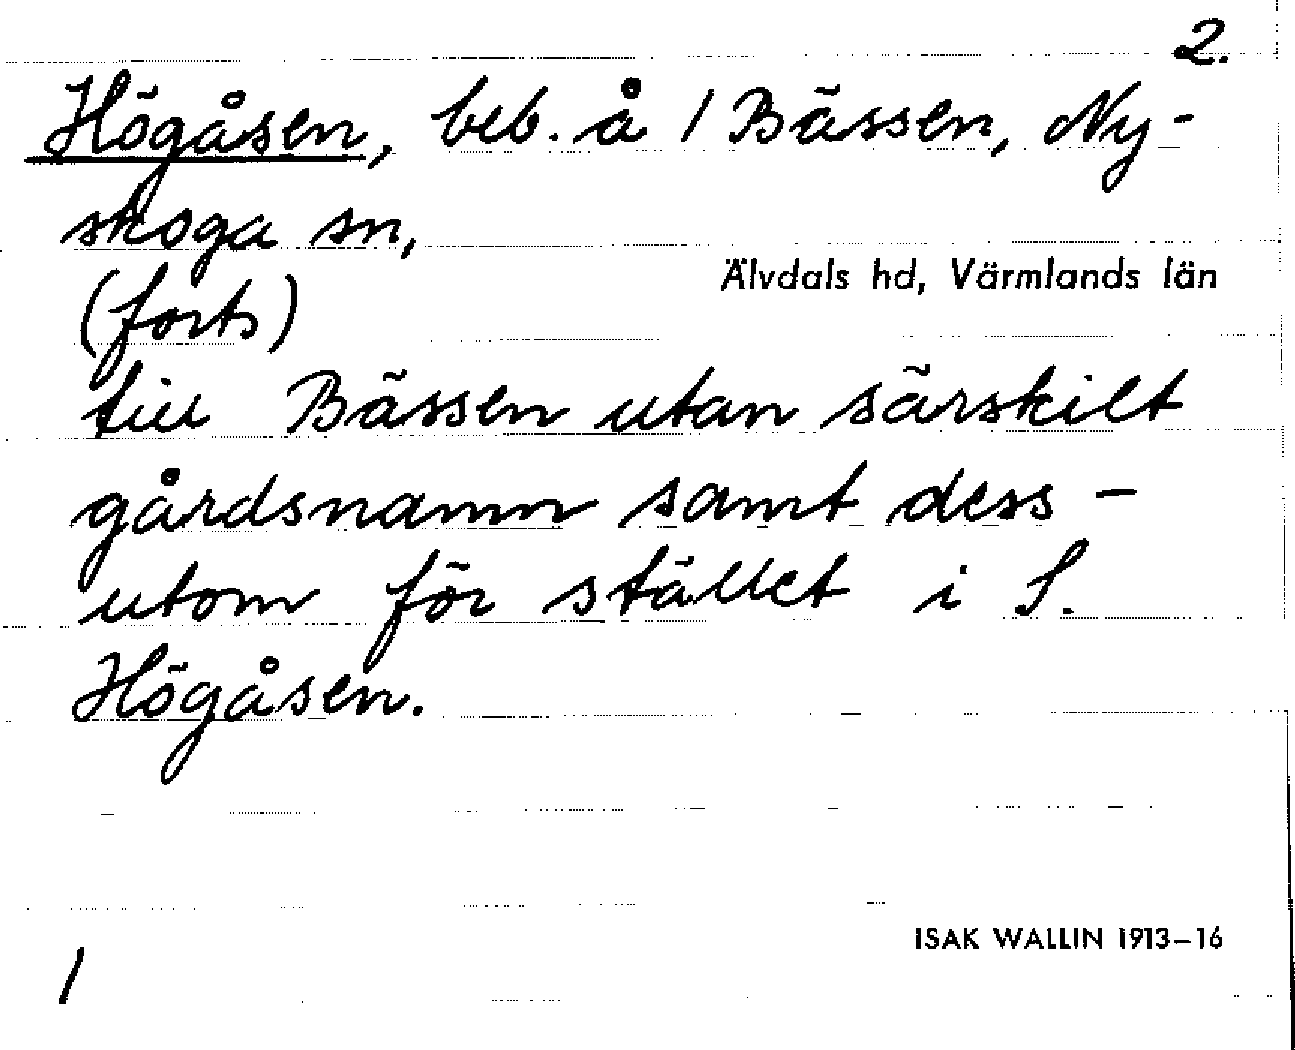 2.
Högåsen, beb. å 1 Bässen, Ny-
skoga sn,
Älvdals hd, Värmlands län
(forts)
till Bässen utan särskilt
gårdsnamn samt dess-
utom för stället i S.
Högåsen.
ISAK WALLIN 1913–16
1